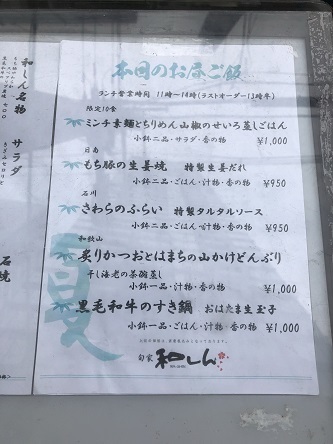 本日のお昼ご飯
ランチ営業時間 11時〜14時(ラストオーダー13時半)
限定10食
ミンチ素麺とちりめん山椒のせいろ蒸しごはん
小鉢二品・サラダ・香の物 ¥1,000
日南
もち豚の生姜焼 特製生姜だれ
小鉢二品・ごはん・汁物・香の物 ¥950
石川
さわらのふらい 特製タルタルソース
小鉢二品・ごはん・汁物・香の物 ¥950
和歌山
炙りかつおとはまちの山かけどんぶり
干し海老の茶碗蒸し
小鉢一品・汁物・香の物 ¥1,000
黒毛和牛のすき鍋 おはたま生玉子
小鉢一品・ごはん・汁物・香の物 ¥1,000
旬家 和しん
夏
和しん名物
サラダ